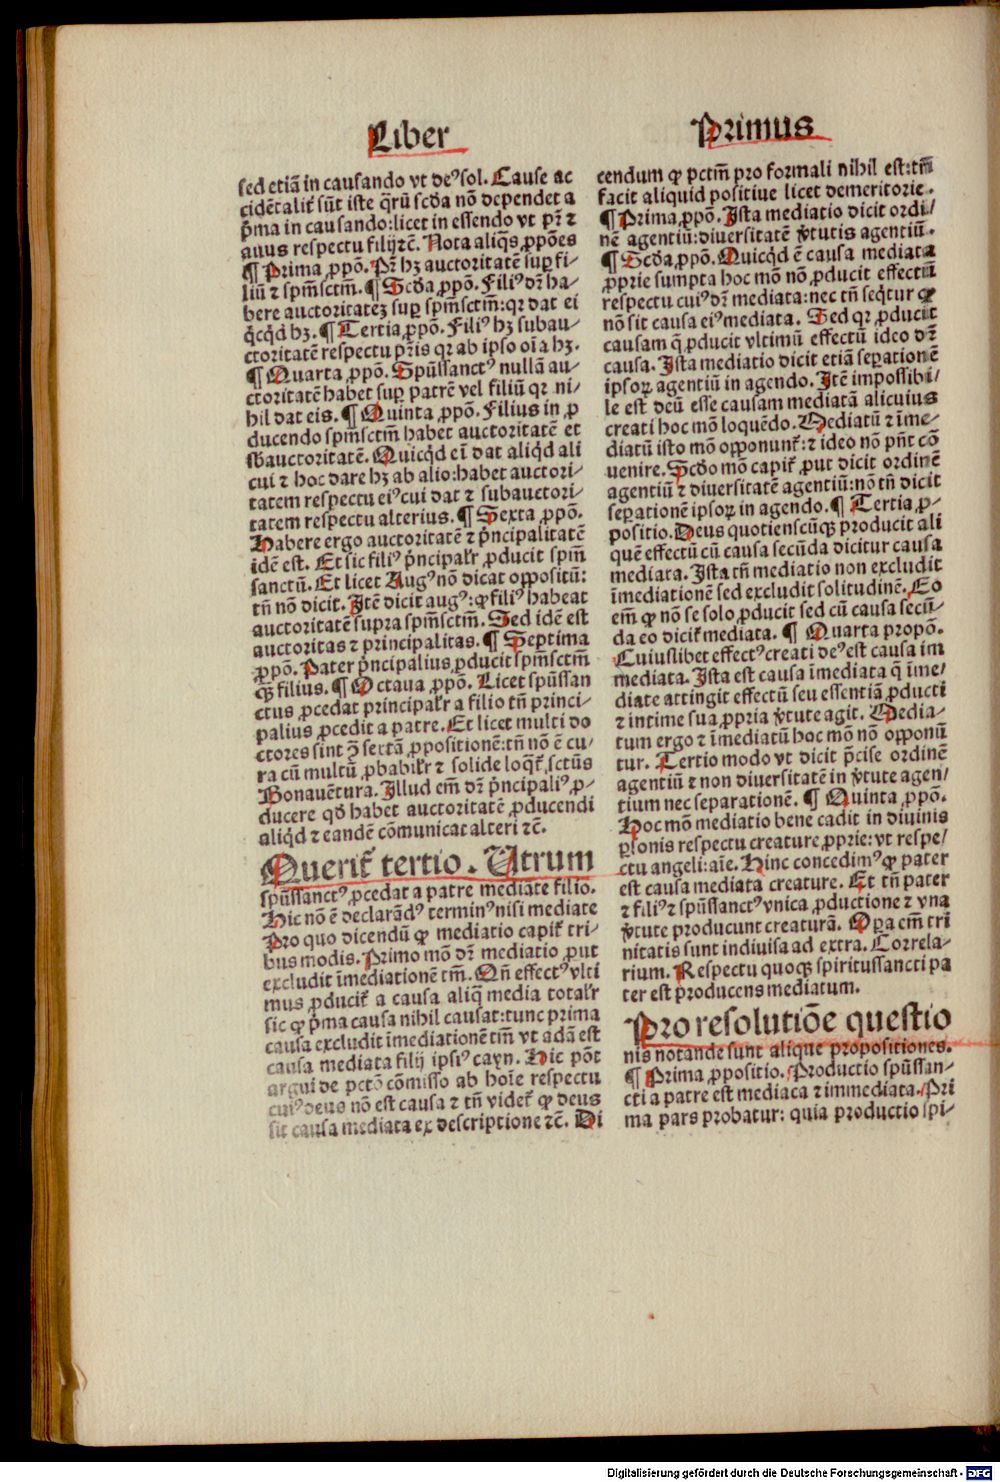 Liber
Primus
sed etiā in causando vt deꝰ sol. Cause ac
cidētalit᷑ sūt iste q̄rū scd̄a nō dependet a
p̄ma in causando: licet in essendo vt pr̄ ⁊
auus respectu filij ⁊c̄. Nota aliq̄s ꝓpōes
¶ Prima ꝓpō. Pr̄ hꝫ auctoritatē suꝑ fi-
liū ⁊ spm̄sctm̄. ¶ Scd̄a ꝓpō. Filiꝰ dr̄ ha-
bere auctoritateꝫ suꝑ spm̄sctm̄: qꝛ dat ei
q̇cq̇d hꝫ. ¶ Tertia ꝓpō. Filiꝰ hꝫ subau-
ctoritatē respectu pr̄is qꝛ ab ipso oīa hꝫ.
¶ Quarta ꝓpō. Spūssanctꝰ nullā au-
ctoritatē habet suꝑ patrē vel filiū qꝛ ni-
hil dat eis. ¶ Quinta ꝓpō. Filius in ꝓ
ducendo spm̄sctm̄ habet auctoritatē et
sb̄auctoritatē. Quicq̇d eī dat aliq̇d ali
cui ⁊ hoc dare hꝫ ab alio: habet auctori-
tatem respectu eiꝰ cui dat ⁊ subauctori-
tatem respectu alterius. ¶ Sexta ꝓpō.
Habere ergo auctoritatē ⁊ p̄ncipalitatē
idē est. Et sic filiꝰ p̄ncipalr̄ ꝓducit spm̄
sanctū. Et licet Augꝰ nō dicat opositū:
tn̄ nō dicit. Itē dicit augꝰ: ꝙ filiꝰ habeat
auctoritatē supra spm̄sctm̄. Sed idē est
auctoritas ⁊ principalitas. ¶ Septima
ꝓpō. Pater p̄ncipalius ꝓducit spm̄sctm̄
qꝫ̄ filius. ¶ Octaua ꝓpō. Licet spūssan
ctus ꝓcedat principalr̄ a filio tn̄ princi-
palius ꝓcedit a patre. Et licet multi do
ctores sint ꝯ̄ sextā ꝓpositionē: tn̄ nō ē cu/
ra cū multū ꝓbabilr̄ ⁊ solide loqt᷑ sctūs
Bonauētura. Illud em̄ dr̄ p̄ncipaliꝰ ꝓ-
ducere qd̄ habet auctoritatē ꝓducendi
aliq̇d ⁊ eandē cōmunicat alteri ⁊c̄.
Querit᷑ tertio. Utrum
spūssanctꝰ ꝓcedat a patre mediāte filio.
Hic nō ē declarādꝰ terminꝰ nisi mediate
Pro quo dicendū ꝙ mediatio capit᷑ tri-
bus modis. Primo mō dr̄ mediatio ꝓut
excludit īmediationē tm̄. Qn̄ effectꝰ vlti
mus ꝓducit᷑ a causa aliq̄ media totalr̄
sic ꝙ p̄ma causa nihil causat: tunc prima
causa excludit īmediationē tm̄ vt adā est
causa mediata filij ipsiꝰ cayn. Hic pōt
argui de pctō cōmisso ab hoīe respectu
cuiꝰ deus nō est causa ⁊ tn̄ videt᷑ ꝙ deus
sit causa mediata ex descriptione ⁊c̄. Di
cendum ꝙ pctm̄ pro formali nihil est: tm̄
facit aliquid positiue licet demeritorie.
¶ Prima ꝓpō. Ista mediatio dicit ordi/
nē agentiū: diuersitatē v̄tutis agentiū.
¶ Scd̄a ꝓpō. Quicq̇d ē causa mediata
ꝓprie sumpta hoc mō nō ꝓducit effectū
respectu cuiꝰ dr̄ mediata: nec tn̄ seq̇tur ꝙ
nō sit causa eiꝰ mediata. Sed qꝛ ꝓducit
causam q̄ ꝓducit vltimū effectū ideo dr̄
causa. Ista mediatio dicit etiā seꝑationē
ipsoꝝ agentiū in agendo. Itē impossibi/
le est deū esse causam mediatā alicuius
creati hoc mō loquēdo. Mediatū ⁊ īme-
diatū isto mō oꝓponunt᷑: ⁊ ideo nō pn̄t cō
uenire. Scd̄o mō capit᷑ ꝓut dicit ordinē
agentiū ⁊ diuersitatē agentiū: nō tn̄ dicit
seꝑationē ipsoꝝ in agendo. ¶ Tertia ꝓ-
positio. Deus quotienscūqꝫ producit ali
quē effectū cū causa secūda dicitur causa
mediata. Ista tn̄ mediatio non excludit
īmediationē sed excludit solitudinē. Eo
em̄ ꝙ nō se solo ꝓducit sed cū causa secū-
da eo dicit᷑ mediata. ¶ Quarta propō.
Cuiuslibet effectꝰ creati deꝰ est causa im
mediata. Ista est causa īmediata q̄ īme/
diate attingit effectū seu essentiā ꝓducti
⁊ intime sua ꝓpria v̄tute agit. Media-
tum ergo ⁊ īmediatū hoc mō nō opponū
tur. Tertio modo vt dicit p̄cise ordinē
agentiū ⁊ non diuersitatē in v̄tute agen/
tium nec separationē. ¶ Quinta ꝓpō.
Hoc mō mediatio bene cadit in diuinis
ꝑsonis respectu creature ꝓprie: vt respe/
ctu angeli: aīe. Hinc concedimꝰ ꝙ pater
est causa mediata creature. Et tn̄ pater
⁊ filiꝰ ⁊ spūssanctꝰ vnica ꝓductione ⁊ vna
v̄tute producunt creaturā. Oꝑa em̄ tri
nitatis sunt indiuisa ad extra. Correla-
rium. Respectu quoqꝫ spiritussancti pa
ter est producens mediatum.
Pro resolutiōe questio
nis notande sunt alique propositiones.
¶ Prima ꝓpositio. Productio spūssan-
cti a patre est mediaca ⁊ immediata. Pri
ma pars probatur: quia productio spi/
Digitalisierung gefördert durch die Deutsche Forschungsgemeinschaft - DFG